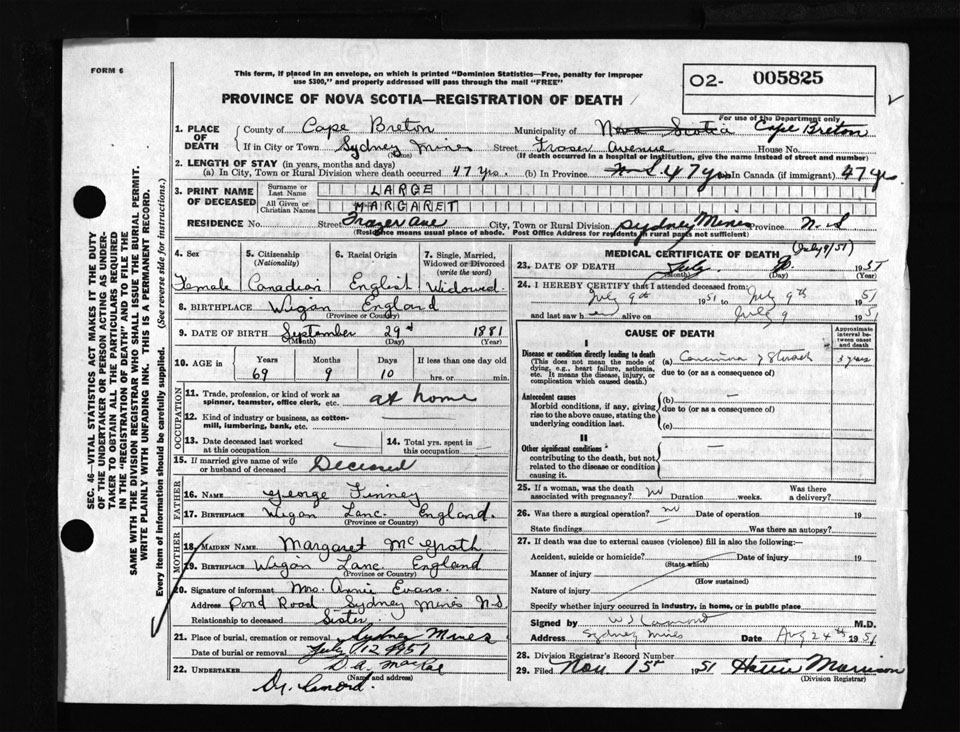 FORM 6
This form, if placed in an envelope, on which is printed "Dominion Statistics—Free, penalty for improper
use $300," and properly addressed will pass through the mail "FREE"
O2- 005825
For use of the Department only
PROVINCE OF NOVA SCOTIA—REGISTRATION OF DEATH
1. PLACE OF DEATH County of Cape Breton Municipality of Nova Scotia Cape Breton
If in City or Town Sydney Mines (Name) Street Fraser Avenue House No.
(If death occurred in a hospital or institution, give the name instead of street and number)
2. LENGTH OF STAY (in years, months and days)
(a) In City, Town or Rural Division where death occurred 47 Yrs. (b) In Province N.S. 47 yrs In Canada (if immigrant) 47 yrs
3. PRINT NAME OF DECEASED Surname or Last Name LARGE
All Given or Christian Names MARGARET
RESIDENCE No. Street Frazer Ave City, Town or Rural Division Sydney Mines Province N.S
(Residence means usual place of abode. Post Office Address for residents in rural parts not sufficient)
4. Sex Female
5. Citizenship (Nationality) Canadian
6. Racial Origin English
7. Single, Married, Widowed or Divorced (write the word) Widowed
8. BIRTHPLACE Wigan England
(Province or Country)
9. DATE OF BIRTH September 29th 1881
(Month) (Day) (Year)
10. AGE IN Years 69 Months 9 Days 10 If less than one day old hrs. or min.
OCCUPATION
11. Trade, profession, or kind of work as spinner, teamster, office clerk, etc. at home
12. Kind of industry or business, as cotton-mill, lumbering, bank, etc.
13. Date deceased last worked at this occupation
14. Total yrs. spent in this occupation
15. If married give name of wife or husband of deceased Deceased
FATHER
16. NAME George Finney
17. BIRTHPLACE Wigan Lanc. England.
(Province or Country)
MOTHER
18. MAIDEN NAME Margaret McGrath
19. BIRTHPLACE Wigan Lanc. England
(Province or Country)
20. Signature of informant Mrs. Annie Evans.
Address Pond Road Sydney Mines N.S
Relationship to deceased Sister
21. Place of burial, cremation or removal Sydney Mines
Date of burial or removal July 12 1951
22. UNDERTAKER D.A. MacRae
(Name and address)
MEDICAL CERTIFICATE OF DEATH
(July 9/51)
23. DATE OF DEATH July 19 51
(Month) (Day) (Year)
24. I HEREBY CERTIFY that I attended deceased from:
July 9th 1951 to July 9th 1951
and last saw h er alive on July 9 1951
CAUSE OF DEATH
Approximate interval between onset and death
I
Disease or condition directly leading to death
(This does not mean the mode of dying, e.g., heart failure, asthenia, etc. It means the disease, injury, or complication which caused death.)
(a) Carcinoma of Stomach 3 years
due to (or as a consequence of)
Antecedent causes
Morbid conditions, if any, giving rise to the above cause, stating the underlying condition last.
(b) —
due to (or as a consequence of)
(c)
II
Other significant conditions
contributing to the death, but not related to the disease or condition causing it. —
25. If a woman, was the death associated with pregnancy? no Duration weeks. Was there a delivery?
26. Was there a surgical operation? no Date of operation 19
State findings Was there an autopsy?
27. If death was due to external causes (violence) fill in also the following:—
Accident, suicide or homicide? Date of injury 19
(State which)
Manner of injury
(How sustained)
Nature of injury
Specify whether injury occurred in industry, in home, or in public place
Signed by M.D.
Address Sydney Mines Date Aug 24th 1951
28. Division Registrar's Record Number
29. Filed Nov. 15th 1951 Hattie Morrison
(Division Registrar)
SEC. 46—VITAL STATISTICS ACT MAKES IT THE DUTY
OF THE UNDERTAKER OR PERSON ACTING AS UNDER-
TAKER TO OBTAIN ALL THE PARTICULARS REQUIRED
IN THE "REGISTRATION OF DEATH" AND TO FILE THE
SAME WITH THE DIVISION REGISTRAR WHO SHALL ISSUE THE BURIAL PERMIT.
WRITE PLAINLY WITH UNFADING INK. THIS IS A PERMANENT RECORD.
Every item of information should be carefully supplied. (See reverse side for instructions.)